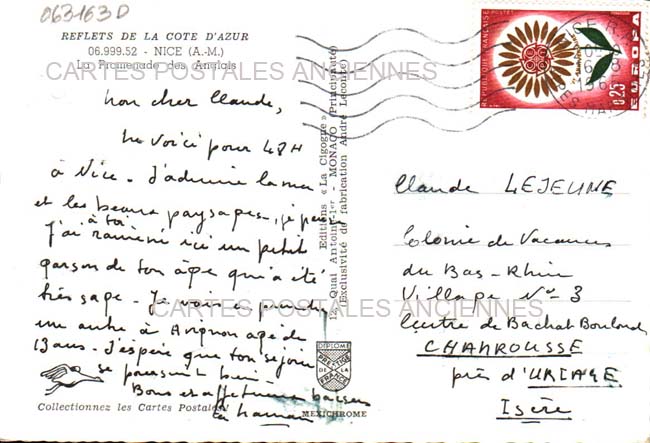 063163D
REFLETS DE LA COTE D'AZUR
06.999.52 - NICE (A.-M.)
La Promenade des Anglais
CARTES POSTALES ANCIENNES
Mon cher Claude,
Me voici pour 48H
à Nice. J'admire la mer
et les beaux paysages, je pense
à toi
J'ai ramené ici un petit
garçon de ton âge qui a été
très sage. Je vais prendre
un autre à Avignon âgé de
13 ans. J'espère que ton séjour
se poursuit bien.
Bons et affectueux baisers
Ta maman
Collectionnez les Cartes Postales !
Editions « La Cigogne »
12, Quai Antoine-1er - MONACO (Principauté)
Exclusivité de fabrication André Leconte
DIPLOME
PRESTIGE
DE LA
FRANCE
MEXICHROME
REPUBLIQUE FRANÇAISE
POSTES
0,25
EUROPA
Claude LEJEUNE
Colonie de Vacances
du Bas-Rhin
Village N° 3
Centre de Bachat Bouloud
CHAMROUSSE
près d'URIAGE
Isère
CARTES POSTALES ANCIENNES